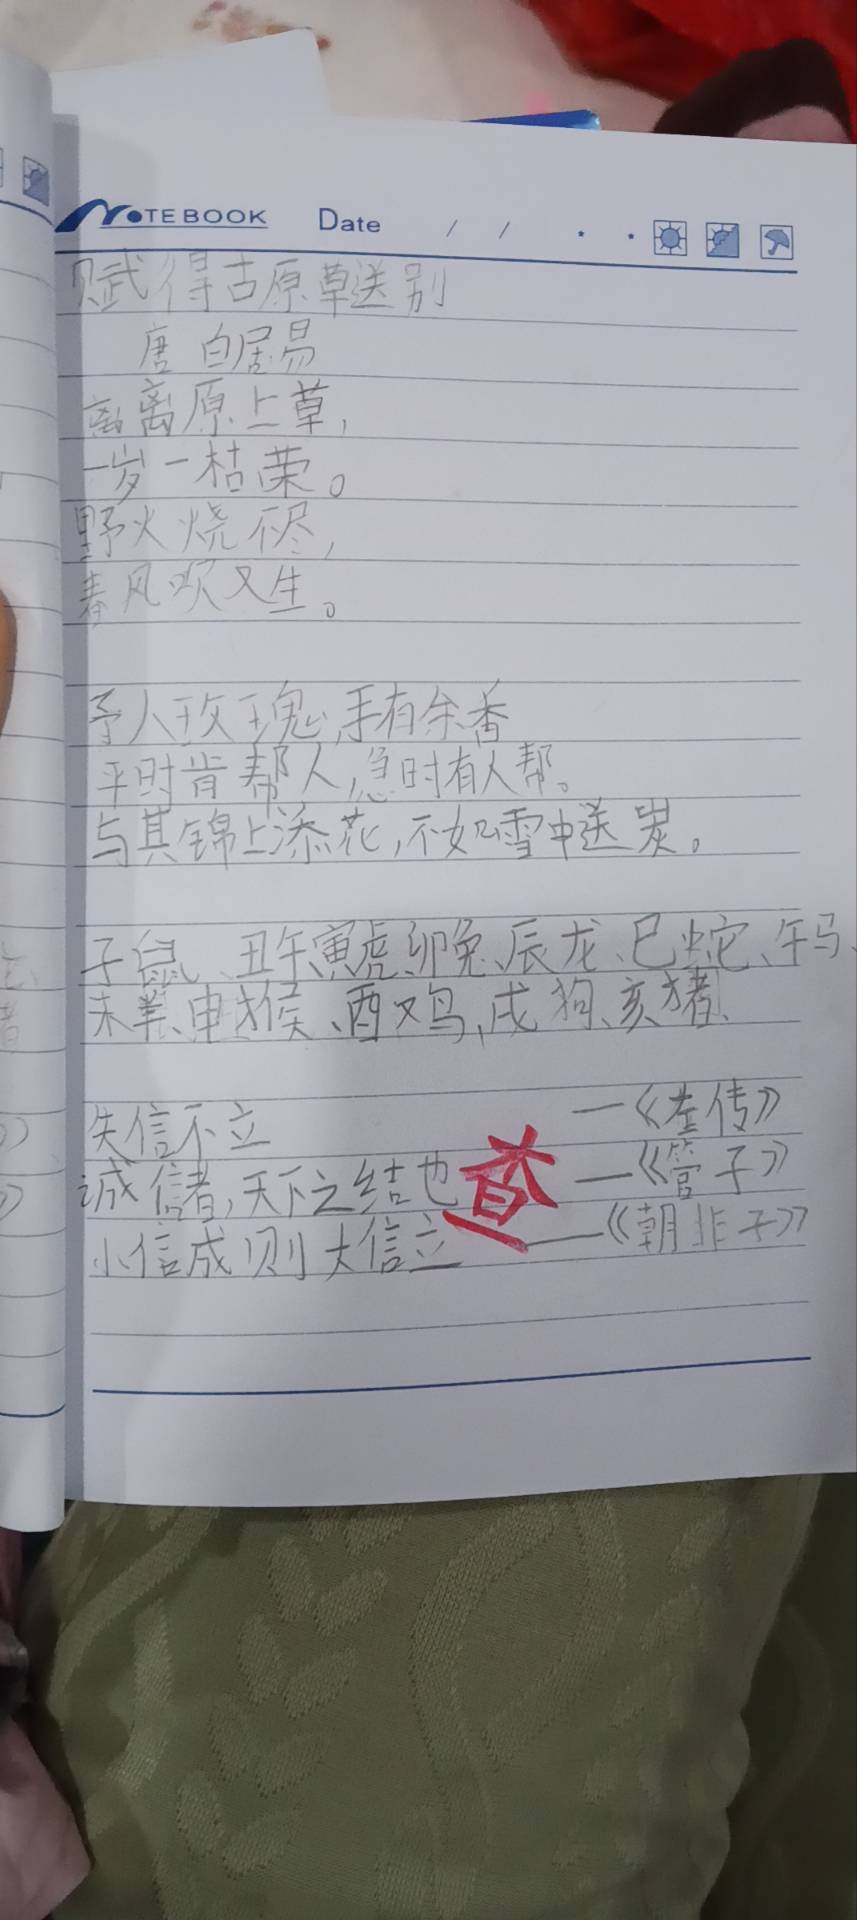 NOTEBOOK Date / / · ·
赋得古原草送别
唐 白居易
离离原上草,
一岁一枯荣。
野火烧不尽,
春风吹又生。
予人玫瑰,手有余香
平时肯帮人,急时有人帮。
与其锦上添花,不如雪中送炭。
子鼠、丑午、寅虎、卯兔、辰龙、巳蛇、午马、
未羊、申猴、酉鸡、戌狗、亥猪、
失信不立 —《左传》
诚信者,天下之结也 —《管子》
查
小信成则大信立 ——《朝非子》